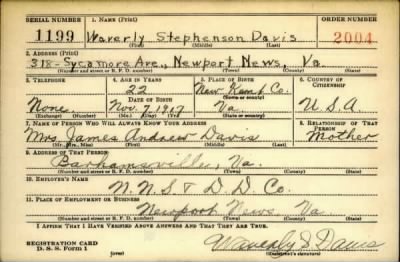 SERIAL NUMBER 1. NAME (Print) ORDER NUMBER
1199 Waverly Stephenson Davis 2004
(First) (Middle) (Last)
2. ADDRESS (Print)
318- Sycamore Ave., Newport News, Va.
(Number and street or R. F. D. number) (Town) (County) (State)
3. TELEPHONE 4. AGE IN YEARS 5. PLACE OF BIRTH 6. COUNTRY OF CITIZENSHIP
22 New Kent Co.
DATE OF BIRTH (Town or county)
None Nov. 7, 1917 Va. U.S.A
(Exchange) (Number) (Mo.) (Day) (Yr.) (State or country)
7. NAME OF PERSON WHO WILL ALWAYS KNOW YOUR ADDRESS 8. RELATIONSHIP OF THAT PERSON
Mrs. James Andrew Davis Mother
(Mr., Mrs., Miss) (First) (Middle) (Last)
9. ADDRESS OF THAT PERSON
Barhamsville, Va.
(Number and street or R. F. D. number) (Town) (County) (State)
10. EMPLOYER'S NAME
N.N.S. & D.D. Co.
11. PLACE OF EMPLOYMENT OR BUSINESS
Newport News Va
(Number and street or R. F. D. number) (Town) (County) (State)
I AFFIRM THAT I HAVE VERIFIED ABOVE ANSWERS AND THAT THEY ARE TRUE.
REGISTRATION CARD
D. S. S. Form 1 (over) Waverly S Davis
(Registrant's signature)